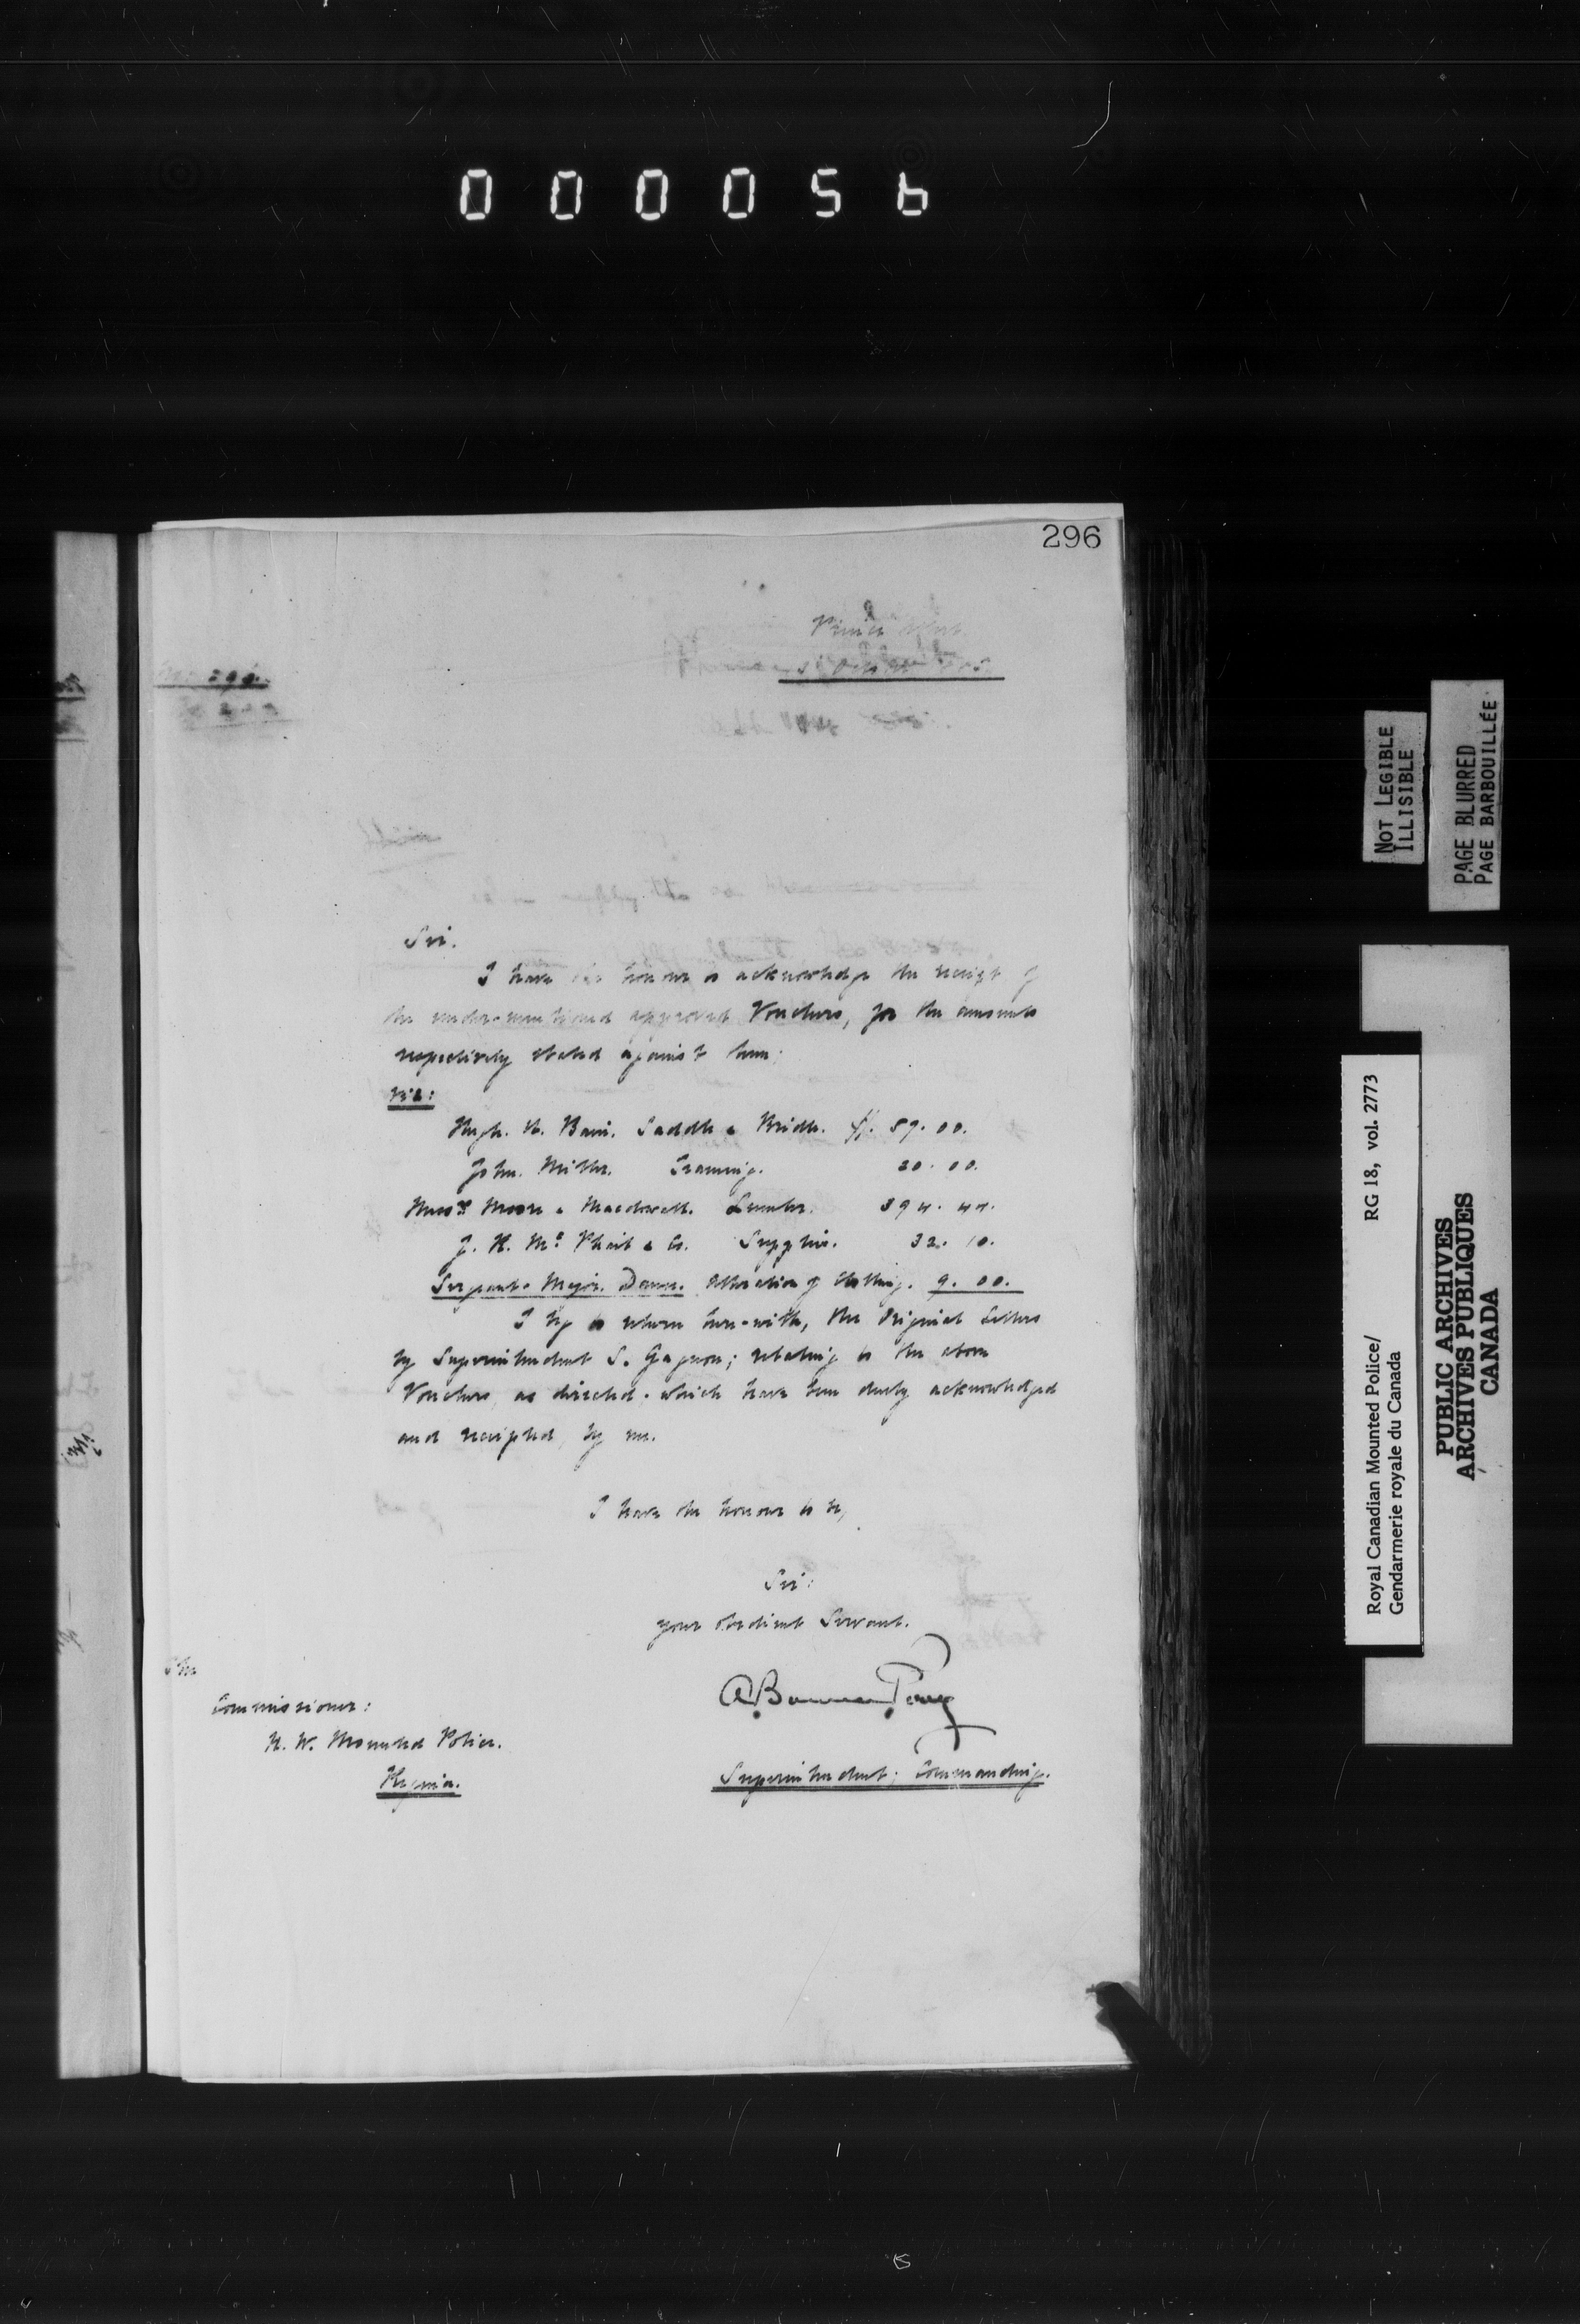 000056
296
Prince Albert
Sir.
I have the honour to acknowledge the receipt of
the under-mentioned approved Vouchers, for the amounts
respectively stated against them;
viz:
Hugh. H. Bain. Saddle & Bridle. $. 57.00.
John. Miller. 20.00.
Mess.rs Moore & Macdowall. Lumber. 394.44.
J. H. Mc Phail & Co. Supplies. 32.10.
Sergeant-Major. Dann. Alteration of Clothing. 9.00.
I beg to return here-with, the Original Letters
by Superintendent S. Gagnon; relating to the above
Vouchers, as directed. which have been duly acknowledged
and receipted, by me.
I have the honour to be,
Sir:
your Obedient Servant.
A. Bowen Perry
Superintendent; Commanding.
The
Commissioner:
N. W. Mounted Police.
Regina.
NOT LEGIBLE
ILLISIBLE
PAGE BLURRED
PAGE BARBOUILLÉE
Royal Canadian Mounted Police/
Gendarmerie royale du Canada
RG 18, vol. 2773
PUBLIC ARCHIVES
ARCHIVES PUBLIQUES
CANADA